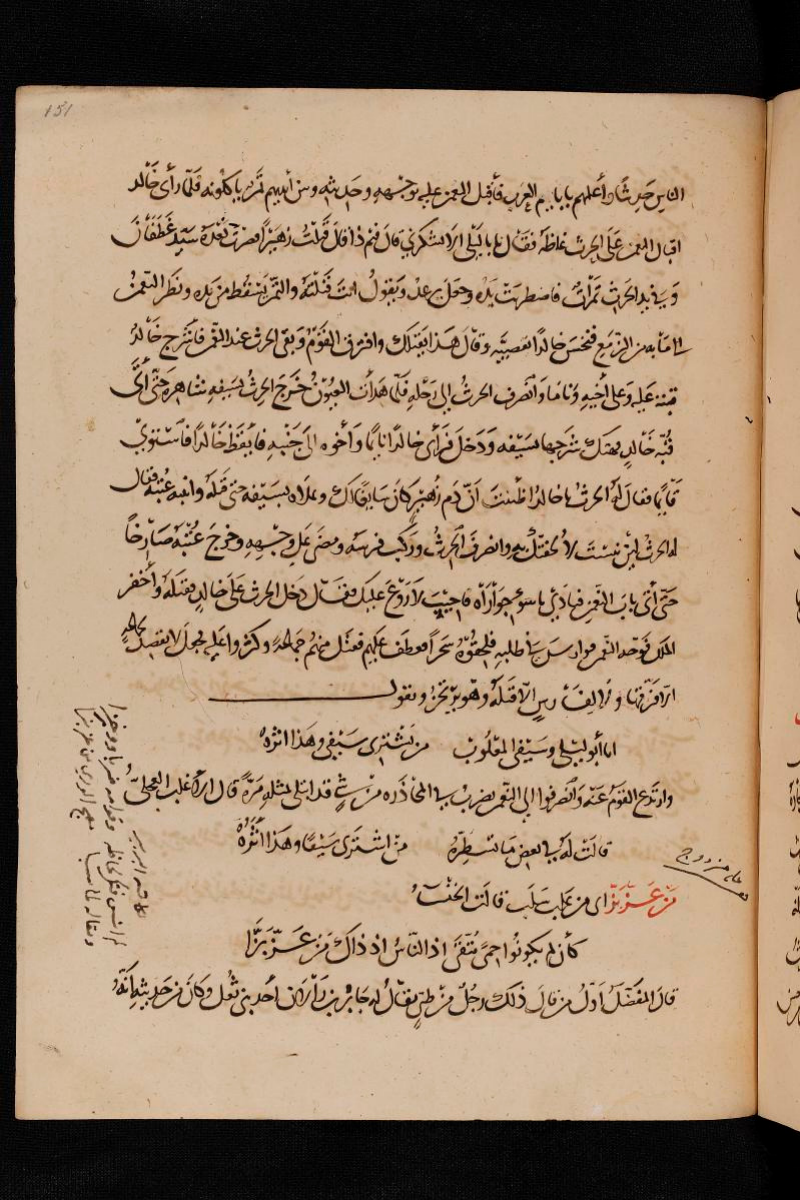 151
الناس حديثا وأعلمهم بايام العرب فأقبل النعمن عليه بوجهه وحديثه وبين أيديهم تمر ياكلونه فلما رأى خالد
اقبال النعمن على الحرث غاظه فقال يابا ليلى الا تشكرني قال فيم ذا قال قتلت زهيرا فصرت بعده سيد غطفان
وفي يد الحرث تمرات فاضطربت يده وجعل يرعد ويقول انت قتلته والتمر يسقط من يده ونظر النعمن
الى ما به من الزمع فنخس خالدا بقضيبه وقال هذا يقتلك وافترق القوم وبقى الحرث عند النعمن فأشرج خالد
قبته عليه وعلى أخيه وناما وانصرف الحرث الى رحله فلما هدأت العيون خرج الحرث بسيفه شاهره حتى أتى
قبة خالد فهتك شرجها بسيفه ودخل فرأى خالدا نايما وأخوه الى جنبه فأيقظ خالدا فاستوى
قايما فقال له الحرث يا خالد اظننت ان دم زهير كان سايغا لك وعلاه بسيفه حتى قتله وانتبه عتبة فقال
له الحرث لين نبست لألحقنك به وانصرف الحرث وركب فرسه ومضى على وجهه وخرج عتبة صارخا
حتى أتى باب النعمن فنادى يا سوء جواراه فاجيب لا روع عليك فقال دخل الحرث على خالد فقتله وأخفر
الملك فوجه النعمن فوارس في طلبه فلحقوه سحرا فعطف عليهم فقتل منهم جماعة وكثروا عليه فجعل لا يقصد لجماعة
الا فرقها ولا لفارس الا قتله وهو يرتجز ويقول
اما أبو ليلى وسيفى المعلوب من يشترى سيفى وهذا اثره
وارتدع القوم عنه وانصرفوا الى النعمن يضرب في المحاذره من شئ قد ابتلى بمثله مرة قال الاغلب العجلى
قالت له في بعض ما تسطره من اشترى سيفا وهذا أثره
من عز بز اى من غلب سلب قالت الخنساء
كأن لم يكونوا حمى يتقى اذ الناس اذ ذاك من عز بزا
قال المفضل أول من قال ذلك رجل من طى يقال له جابر بن رألان أحد بنى ثعل وكان من حديثه أنه